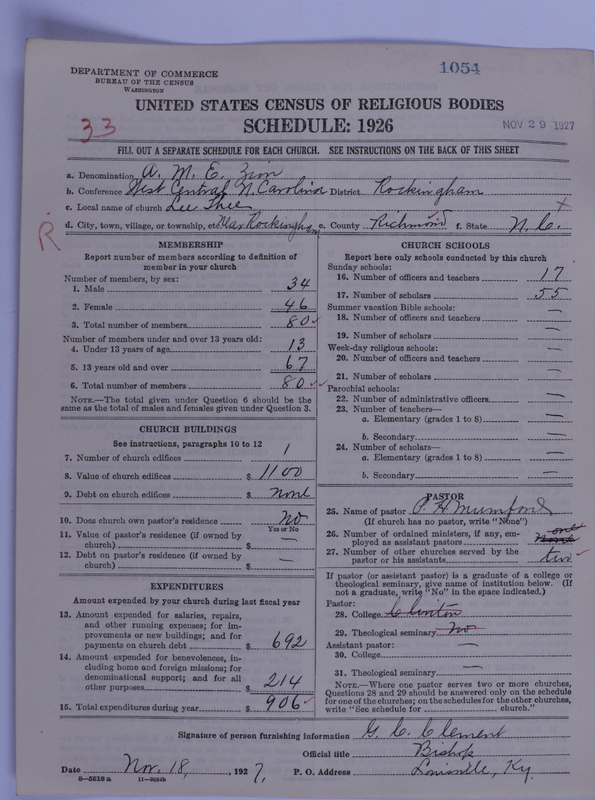 1054
DEPARTMENT OF COMMERCE
BUREAU OF THE CENSUS
WASHINGTON
UNITED STATES CENSUS OF RELIGIOUS BODIES
33
SCHEDULE: 1926
NOV 29 1927
FILL OUT A SEPARATE SCHEDULE FOR EACH CHURCH. SEE INSTRUCTIONS ON THE BACK OF THIS SHEET
a. Denomination A. M. E. Zion
b. Conference West Central N. Carolina District Rockingham
c. Local name of church Lee Thee x
R
d. City, town, village, or township, or Near Rockingham e. County Richmond f. State N. C.
MEMBERSHIP
Report number of members according to definition of
member in your church
Number of members, by sex:
1. Male 34
2. Female 46
3. Total number of members 80
Number of members under and over 13 years old:
4. Under 13 years of age 13
5. 13 years old and over 67
6. Total number of members 80
NOTE.—The total given under Question 6 should be the
same as the total of males and females given under Question 3.
CHURCH BUILDINGS
See instructions, paragraphs 10 to 12
7. Number of church edifices 1
8. Value of church edifices $ 1100
9. Debt on church edifices $ none
10. Does church own pastor's residence No
Yes or No
11. Value of pastor's residence (if owned by
church) $ —
12. Debt on pastor's residence (if owned by
church) $ —
EXPENDITURES
Amount expended by your church during last fiscal year
13. Amount expended for salaries, repairs,
and other running expenses; for im-
provements or new buildings; and for
payments on church debt $ 692
14. Amount expended for benevolences, in-
cluding home and foreign missions; for
denominational support; and for all
other purposes $ 214
15. Total expenditures during year $ 906
CHURCH SCHOOLS
Report here only schools conducted by this church
Sunday schools:
16. Number of officers and teachers 17
17. Number of scholars 55
Summer vacation Bible schools:
18. Number of officers and teachers —
19. Number of scholars —
Week-day religious schools:
20. Number of officers and teachers —
21. Number of scholars —
Parochial schools:
22. Number of administrative officers —
23. Number of teachers—
a. Elementary (grades 1 to 8) —
b. Secondary —
24. Number of scholars—
a. Elementary (grades 1 to 8) —
b. Secondary —
PASTOR
25. Name of pastor P. H. Mumford
(If church has no pastor, write "None")
26. Number of ordained ministers, if any, em- one
ployed as assistant pastors None
27. Number of other churches served by the
pastor or his assistants two
If pastor (or assistant pastor) is a graduate of a college or
theological seminary, give name of institution below. (If
not a graduate, write "No" in the space indicated.)
Pastor:
28. College Clinton
29. Theological seminary No
Assistant pastor:
30. College —
31. Theological seminary —
NOTE.—Where one pastor serves two or more churches,
Questions 28 and 29 should be answered only on the schedule
for one of the churches; on the schedules for the other churches,
write "See schedule for church."
Signature of person furnishing information G. C. Clement
Official title Bishop
Date Nov. 18, 1927, P. O. Address Louisville, Ky.
8—5518 a